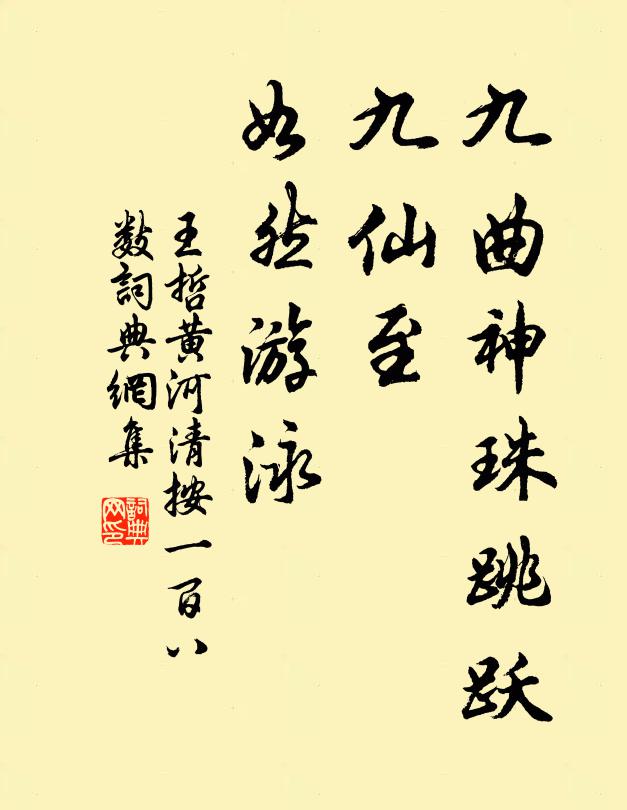 九曲神珠跳跃
九仙至
如然游泳
王哲黄河清按一百八
数詞典網集
詞典
网印